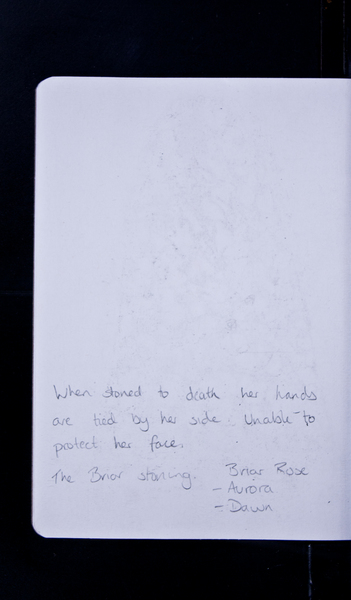 When stoned to death her hands
are tied by her side. Unable to
protect her face.
The Briar stoning. Briar Rose
- Aurora
- Dawn